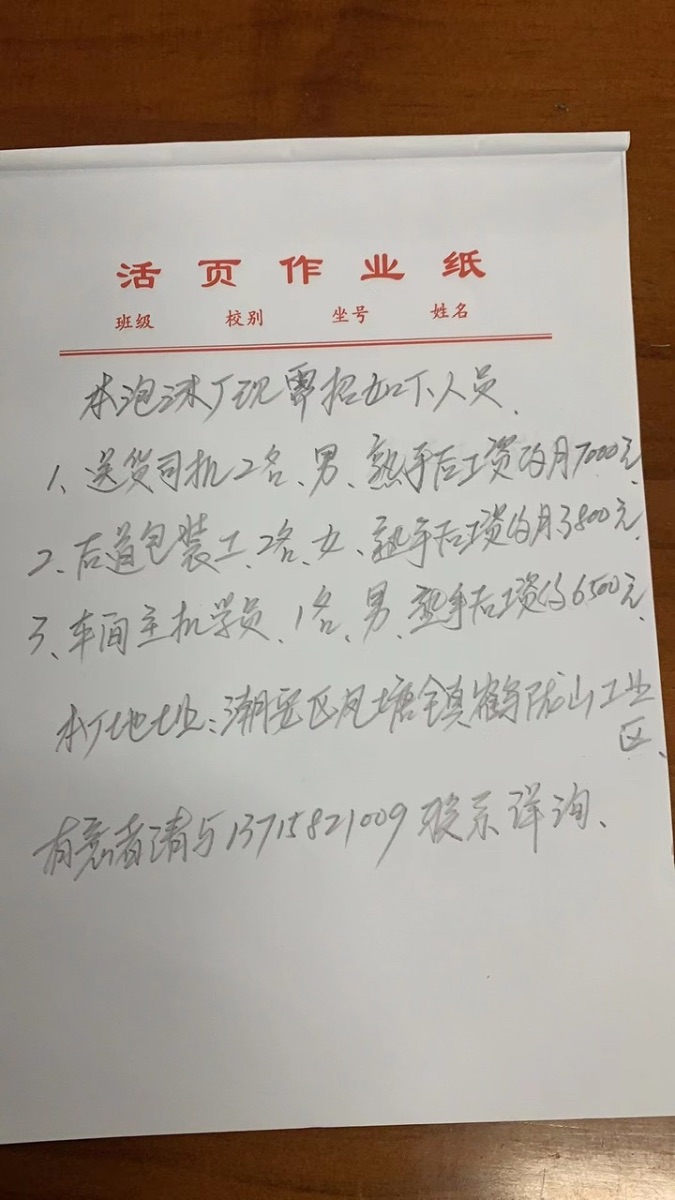 活页作业纸
班级 校别 坐号 姓名
本泡沫厂现需招如下人员.
1、送货司机2名、男、熟手后工资约月7000元、
2、后道包装工、2名、女、熟手后工资约月3800元、
3、车间主机学员、1名、男、熟手后工资约6500元、
本厂地址:潮安区凤塘镇鹤陇山工业
区、
有意者请与13715821009联系详询、